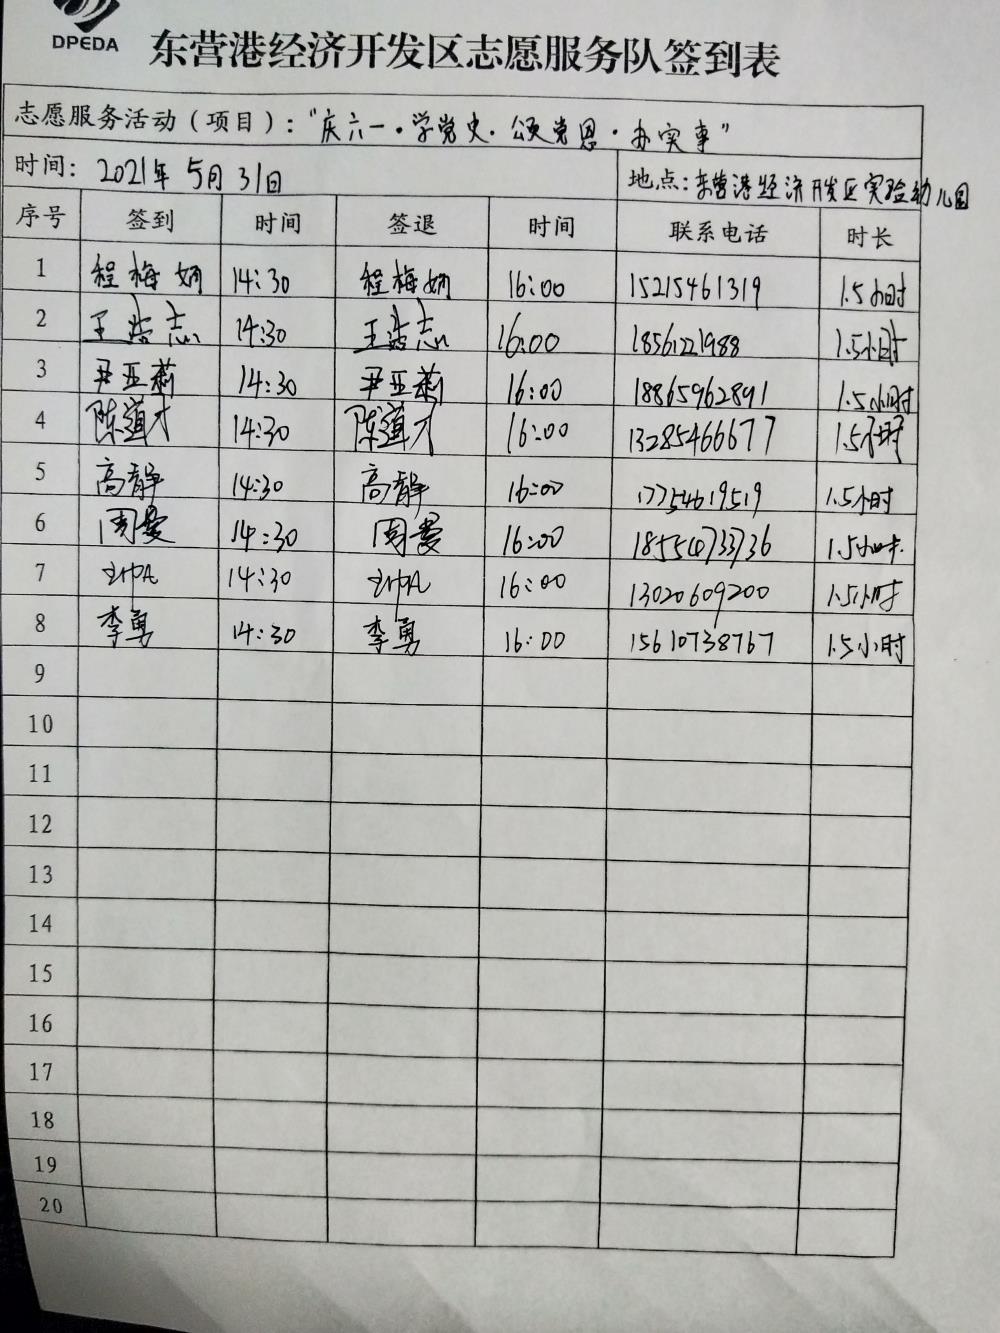 DPEDA
东营港经济开发区志愿服务队签到表
志愿服务活动（项目）："庆六一·学党史·颂党恩·办实事"
时间：2021年5月31日 地点：东营港经济开发区实验幼儿园
序号 签到 时间 签退 时间 联系电话 时长
1 程梅娟 14:30 程梅娟 16:00 15215461319 1.5小时
2 王浩志 14:30 王浩志 16:00 18561221988 1.5小时
3 尹亚莉 14:30 尹亚莉 16:00 18865962891 1.5小时
4 陈道才 14:30 陈道才 16:00 13285466677 1.5小时
5 高静 14:30 高静 16:00 17754619519 1.5小时
6 周曼 14:30 周曼 16:00 1.5小时
7 14:30 16:00 13020609200 1.5小时
8 李勇 14:30 李勇 16:00 15610738767 1.5小时
9
10
11
12
13
14
15
16
17
18
19
20